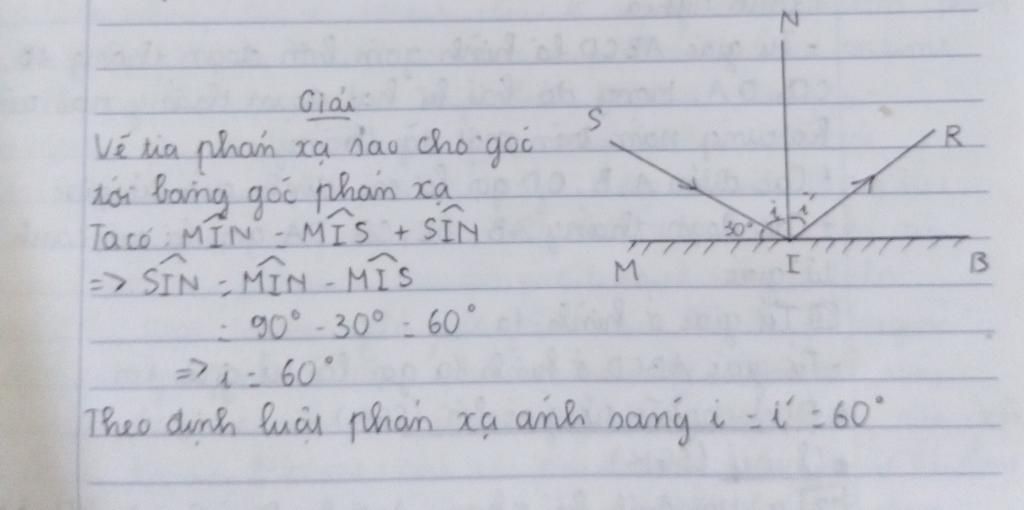 Giải:
Vẽ tia phản xạ sao cho góc
tới bằng góc phản xạ
Ta có: MÎN = MÎS + SÎN
=> SÎN = MÎN - MÎS
= 90° - 30° = 60°
=> i = 60°
Theo định luật phản xạ ánh sáng i = i' = 60°
N
S
R
i i'
30°
M
I
B